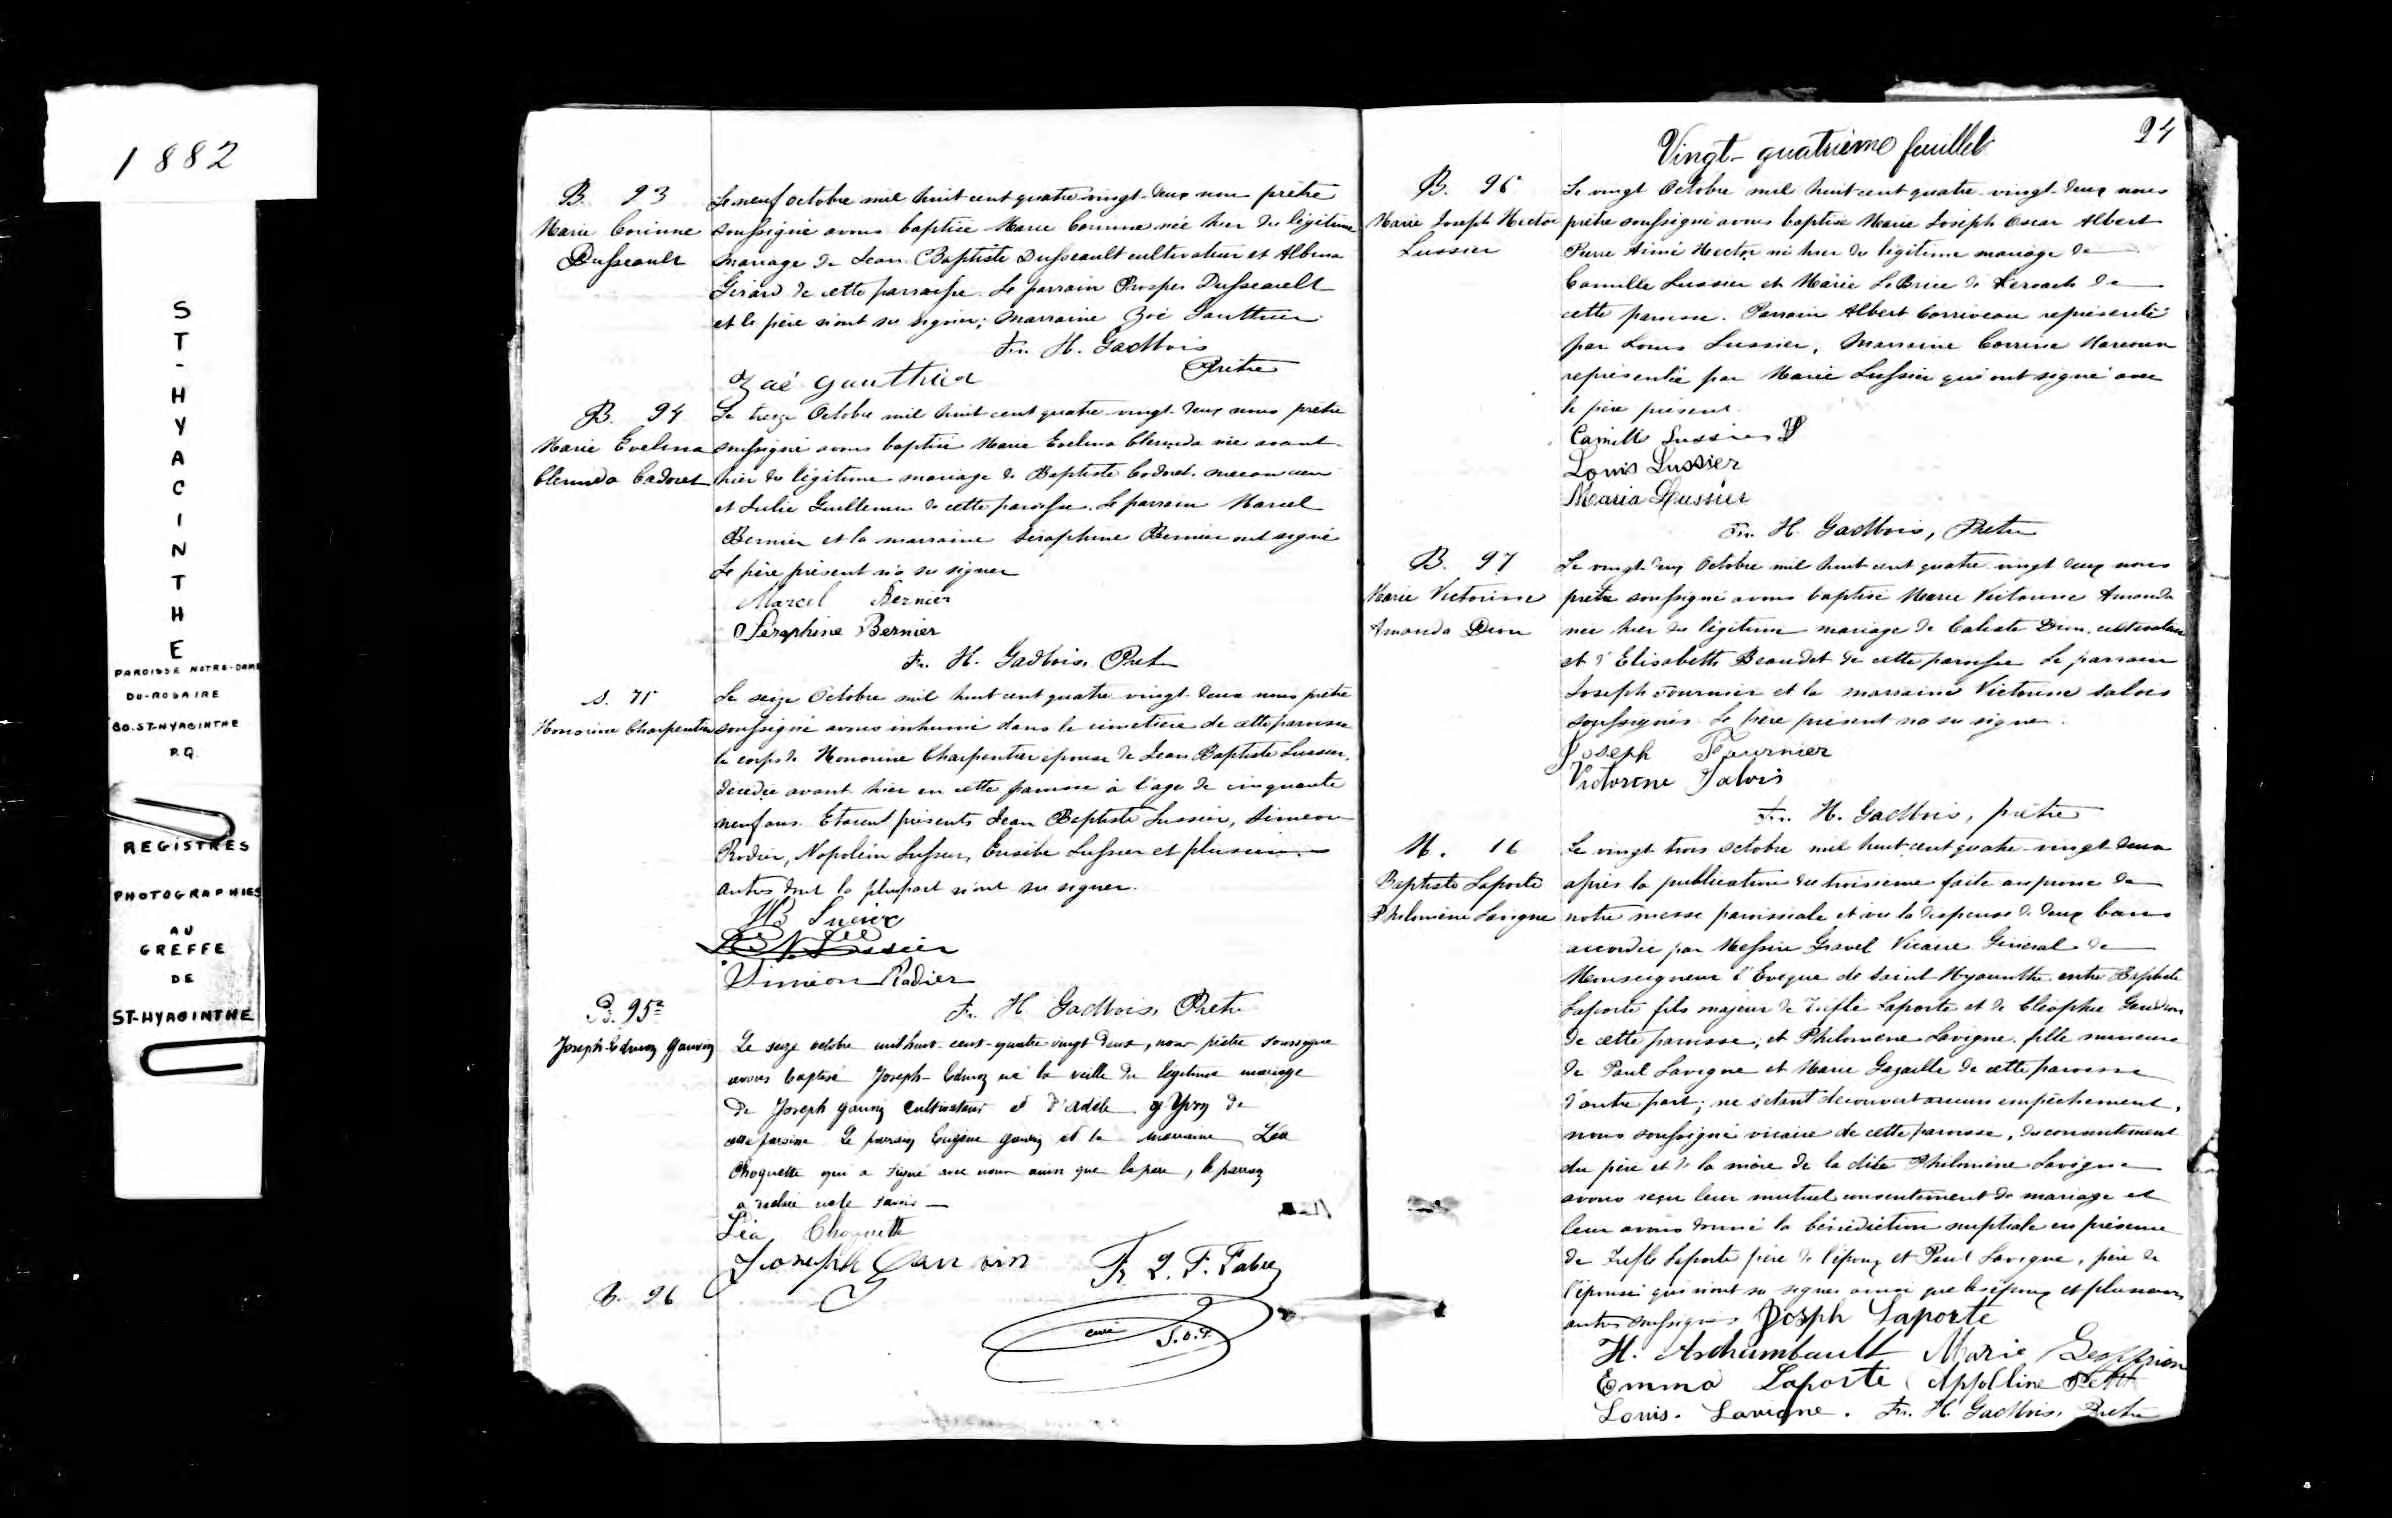 1882
S
T
-
H
Y
A
C
I
N
T
H
E
PAROISSE NOTRE-DAME
DU-ROSAIRE
CO. ST-HYACINTHE
P.Q.
REGISTRES
PHOTOGRAPHIES
AU
GREFFE
DE
ST-HYACINTHE
B. 93
Marie Corinne
Dusseault
Le neuf octobre mil huit cent quatre-vingt-deux nous prêtre
soussigné avons baptisé Marie Corinne née hier du légitime
mariage de Jean Baptiste Dusseault cultivateur et Albina
Girard de cette paroisse. Le parrain Prosper Dusseault
et le père n'ont su signer; Marraine Zoé Gauthier
Fr. H. Gadbois
Prêtre
Zoé Gauthier
B. 94
Marie Evelina
Clerinda Cadoret
Le treize Octobre mil huit cent quatre-vingt-deux nous prêtre
soussigné avons baptisé Marie Evelina Clerinda née avant
hier du légitime mariage de Baptiste Cadoret, mecanicien
et Julie Guillemin de cette paroisse. Le parrain Marcel
Bernier et la marraine Séraphine Bernier ont signé
Le père présent n'a su signer
Marcel Bernier
Séraphine Bernier
Fr. H. Gadbois, Pret
S. 71
Honorine Charpentier
Le seize Octobre mil huit cent quatre-vingt-deux nous prêtre
soussigné avons inhumé dans le cimetière de cette paroisse
le corps de Honorine Charpentier épouse de Jean Baptiste Lussier,
décédée avant hier en cette paroisse à l'age de cinquante
neuf ans. Etaient présents Jean Baptiste Lussier, Simeon
Rodier, Napoléon Lussier, Eusèbe Lussier et plusieurs
autres dont la plupart n'ont su signer.
JB Lucier
Lussier
Simeon Rodier
Fr. H. Gadbois, Prêtre
B. 95e
Joseph-Edmon Gauvin
Le seize octobre mil huit-cent-quatre vingt deux, nous prêtre soussigné
avons baptisé Joseph-Edmon né la veille du légitime mariage
de Joseph Gauvin cultivateur et d'Adèle Yvon de
cette paroisse Le parrain Eugène Gauvin et la marraine Léa
Choquette qui a signé avec nous ainsi que le père, le parrain
a déclaré ne le savoir
Léa Choquette
Joseph Gauvin
Fr L. F. Fabre
curé S.O.P.
B. 96
Vingt-quatrième feuillet
24
B. 96
Marie Joseph Hector
Lussier
Le vingt Octobre mil huit-cent quatre-vingt-deux nous
prêtre soussigné avons baptisé Marie Joseph Oscar Albert
Pierre Aimé Hector né hier du légitime mariage de
Camille Lussier et Marie LeBrice de Keroack de
cette paroisse. Parrain Albert Corriveau représenté
par Louis Lussier, Marraine Corrine Marcoux
représentée par Marie Lussier qui ont signé avec
le père présent
Camille Lussier
Louis Lussier
Maria Lussier
Fr. H. Gadbois, Pretre
B. 97
Marie Victorine
Amanda Dion
Le vingt-deux Octobre mil huit cent quatre-vingt deux nous
prêtre soussigné avons baptisé Marie Victorine Amanda
née hier du légitime mariage de Calixte Dion, cultivateur
et d'Elisabeth Beaudet de cette paroisse Le parrain
Joseph Fournier et la marraine Victorine Salois
soussignés. Le père présent n'a su signer.
Joseph Fournier
Victorine Salois
Fr. H. Gadbois, prêtre
M. 16
Baptiste Laporte
Philomène Lavigne
Le vingt-trois octobre mil huit-cent quatre-vingt-deux
après la publication du troisième faite au prone de
notre messe paroissiale et vu la dispense de deux bans
accordée par Messire Gravel Vicaire Général de
Monseigneur l'Evêque de Saint Hyacinthe entre Baptiste
Laporte fils majeur de Zéflé Laporte et de Cléophée Gendron
de cette paroisse, et Philomène Lavigne, fille mineure
de Paul Lavigne et Marie Gazaille de cette paroisse
d'autre part; ne s'étant découvert aucun empêchement,
nous soussigné vicaire de cette paroisse, du consentement
du père et de la mère de la dite Philomène Lavigne
avons reçu leur mutuel consentement de mariage et
leur avons donné la bénédiction nuptiale en présence
de Zéflé Laporte père de l'époux et Paul Lavigne, père de
l'épouse qui n'ont su signer ainsi que les époux et plusieurs
autres soussignés Joseph Laporte
H. Archambault Marie
Emma Laporte Appolline Petit
Louis Lavigne. Fr. H. Gadbois, Pretre